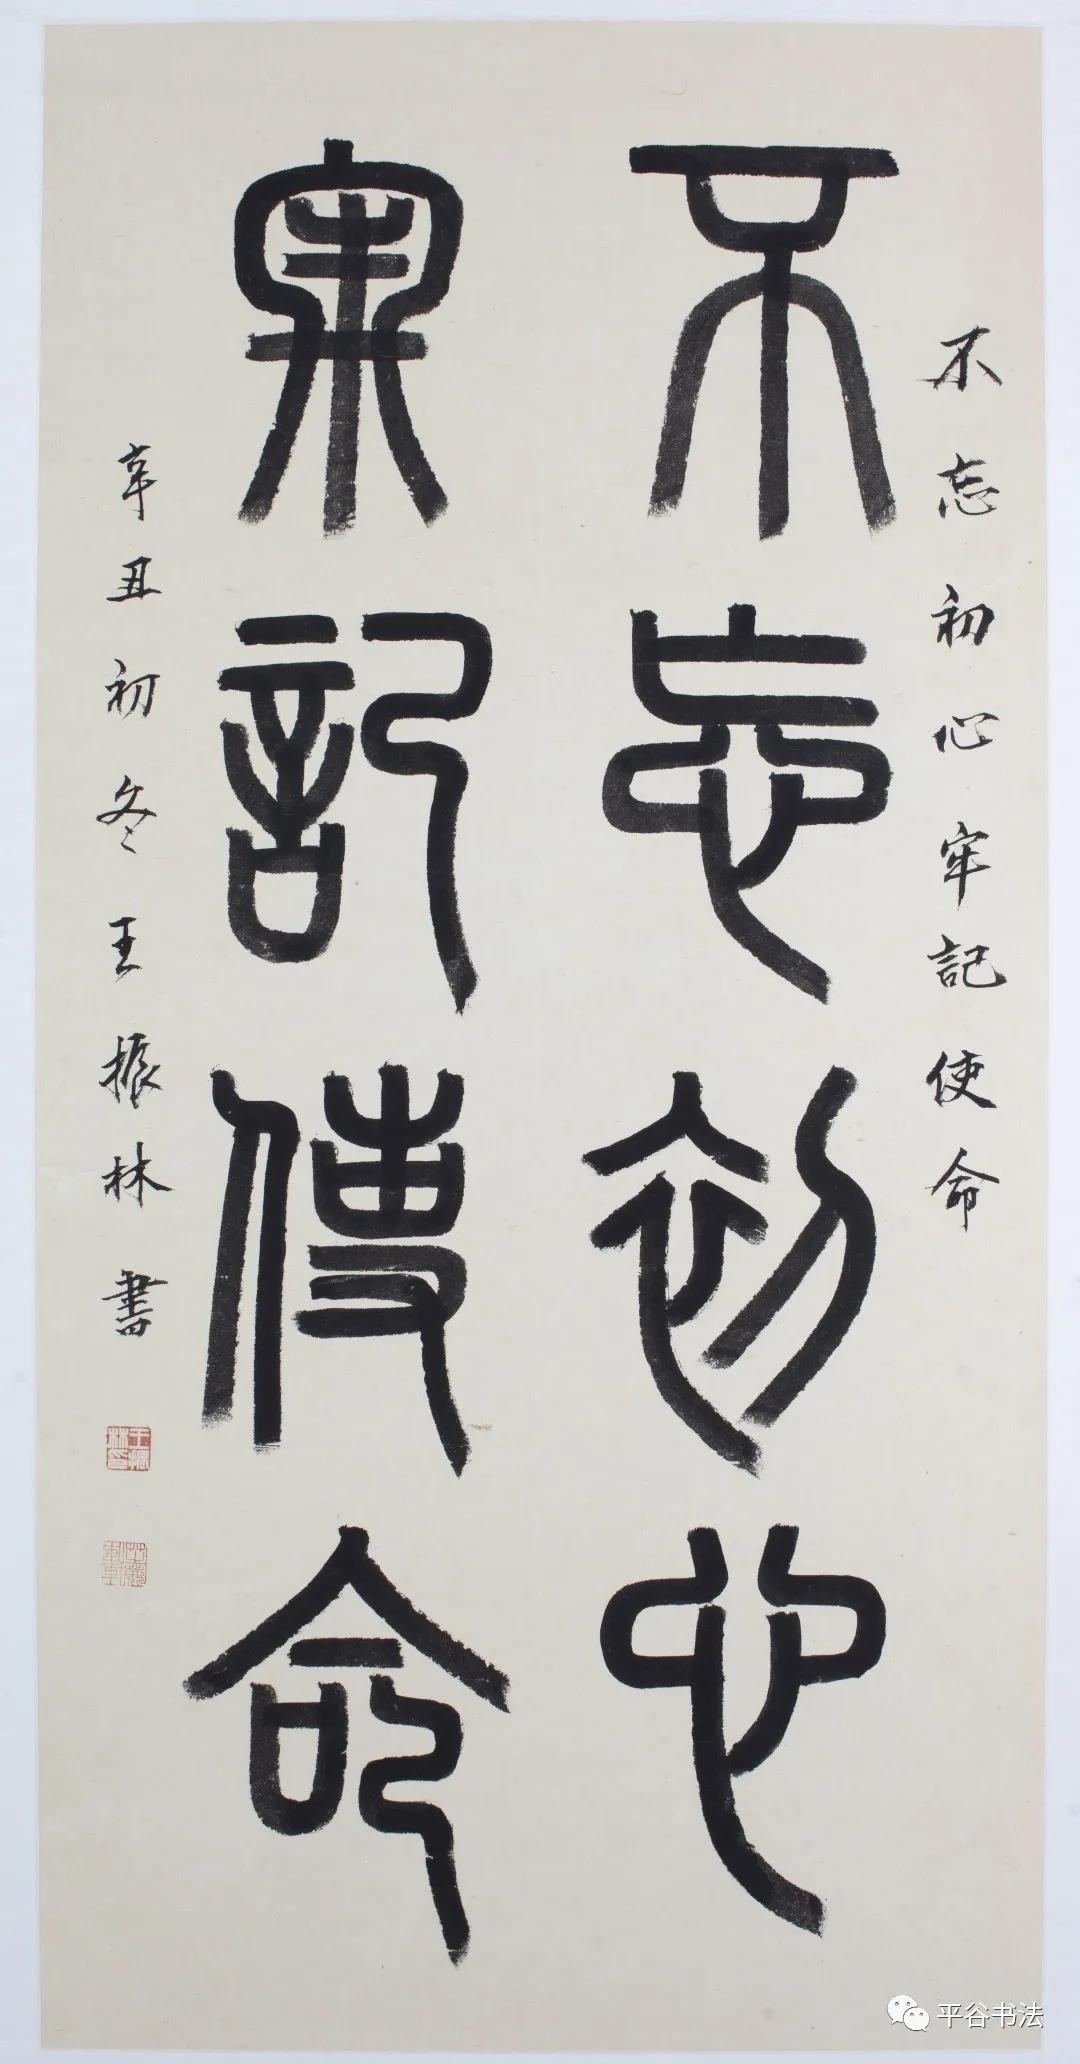 不忘初心牢記使命
不忘初心
牢記使命
辛丑初冬王振林書
王振林印
平谷书法